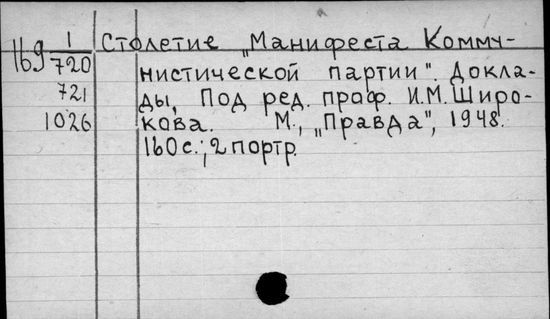 169 1/720 Столетие „Манифеста Комму-
нистической партии". Докла-
721 ды, Под ред. проф. И.М.Широ-
1026 кова. М., „Правда", 1948.
160с.; 2 портр.